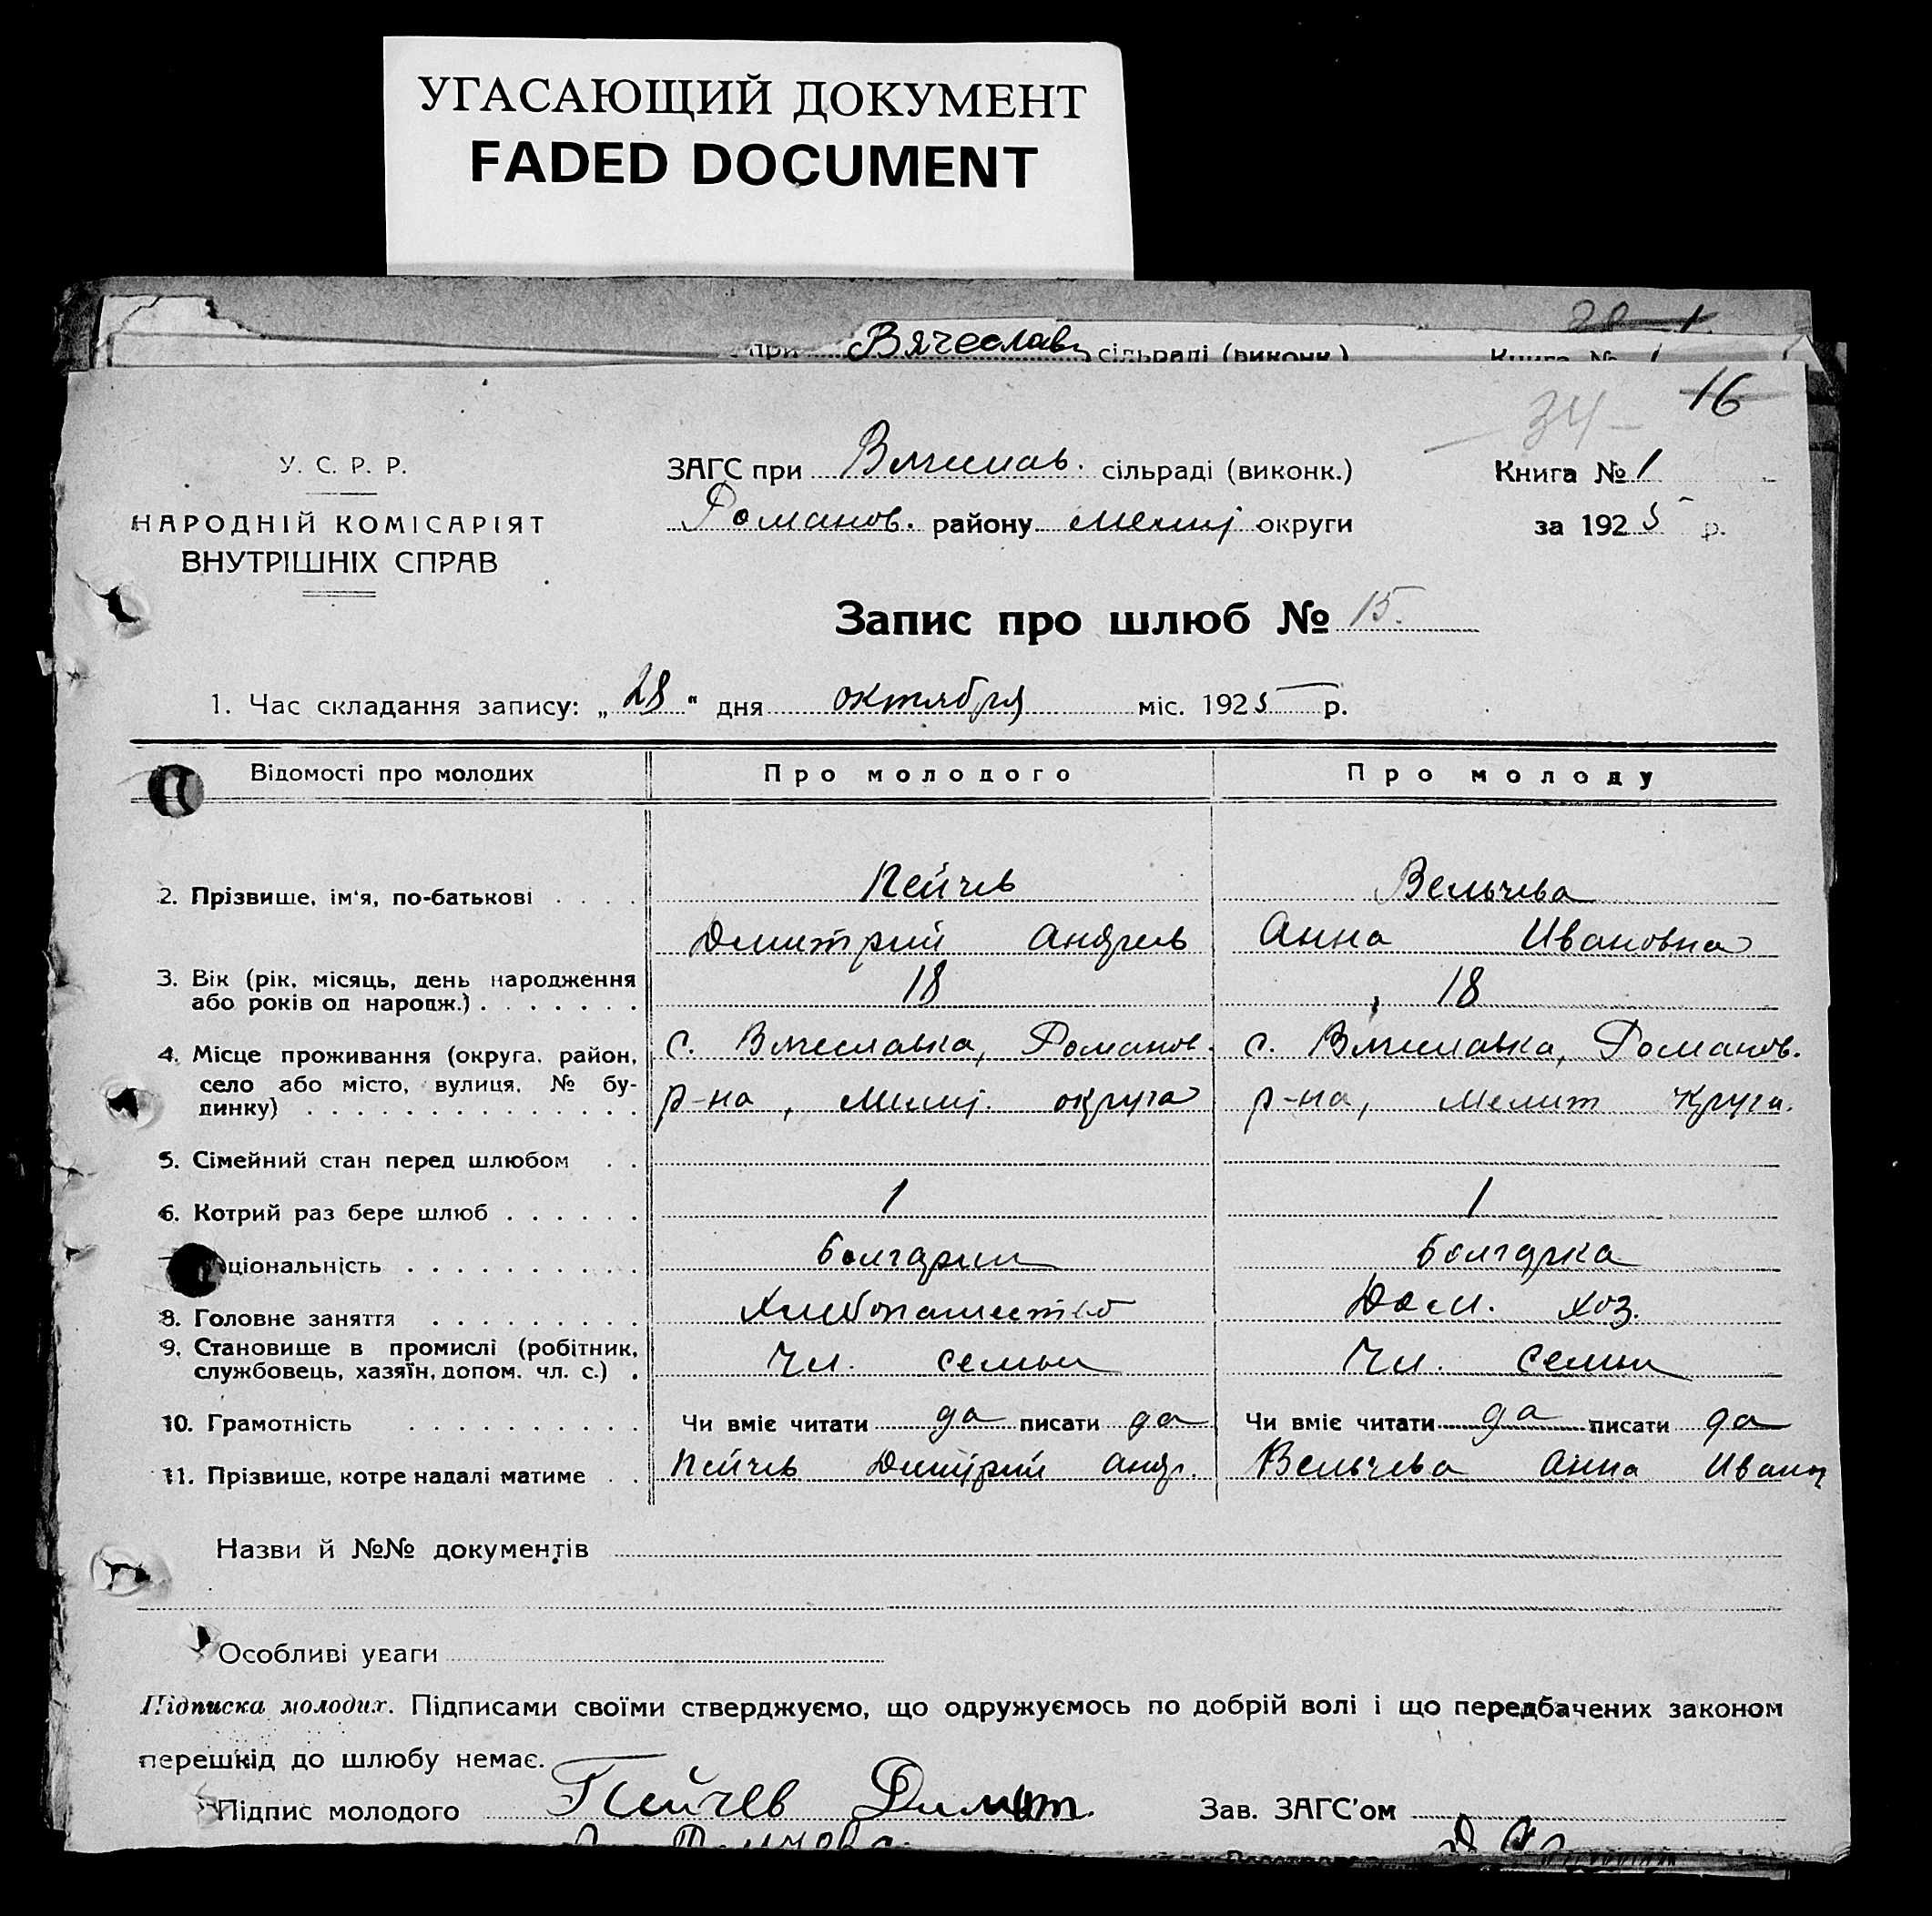 УГАСАЮЩИЙ ДОКУМЕНТ
FADED DOCUMENT
при Вячеславу сільраді (виконк.) Книга № 1
34 16
У. С. Р. Р. ЗАГС при Вячеслав. сільраді (виконк.) Книга № 1
НАРОДНІЙ КОМІСАРІЯТ Романов. району Мелит округи за 1925 р.
ВНУТРІШНІХ СПРАВ
Запис про шлюб № 15.
1. Час складання запису: „28“ дня октября міс. 1925 р.
Відомості про молодих Про молодого Про молоду
2. Прізвище, ім'я, по-батькові Пейчев Вельчева
Димитрий Андреев Анна Ивановна
3. Вік (рік, місяць, день народження
або років од народж.) 18 18
4. Місце проживання (округа, район, с. Вячеславка, Романов. с. Вячеславка, Романов.
село або місто, вулиця, № бу-
динку) р-на, Мелит. округа р-на, Мелит округа.
5. Сімейний стан перед шлюбом
6. Котрий раз бере шлюб 1 1
ціональність болгарин болгарка
8. Головне заняття Хлебопашество Дом. хоз.
9. Становище в промислі (робітник,
службовець, хазяїн, допом. чл. с.) Чл. семьи Чл. семьи
10. Грамотність Чи вміє читати да писати да Чи вміє читати да писати да
11. Прізвище, котре надалі матиме Пейчев Димитрий Андр. Вельчева Анна Иван
Назви й №№ документів
Особливі уваги
Підписка молодих. Підписами своїми стверджуємо, що одружуємось по добрій волі і що передбачених законом
перешкід до шлюбу немає.
Підпис молодого Пейчев Димит. Зав. ЗАГС'ом